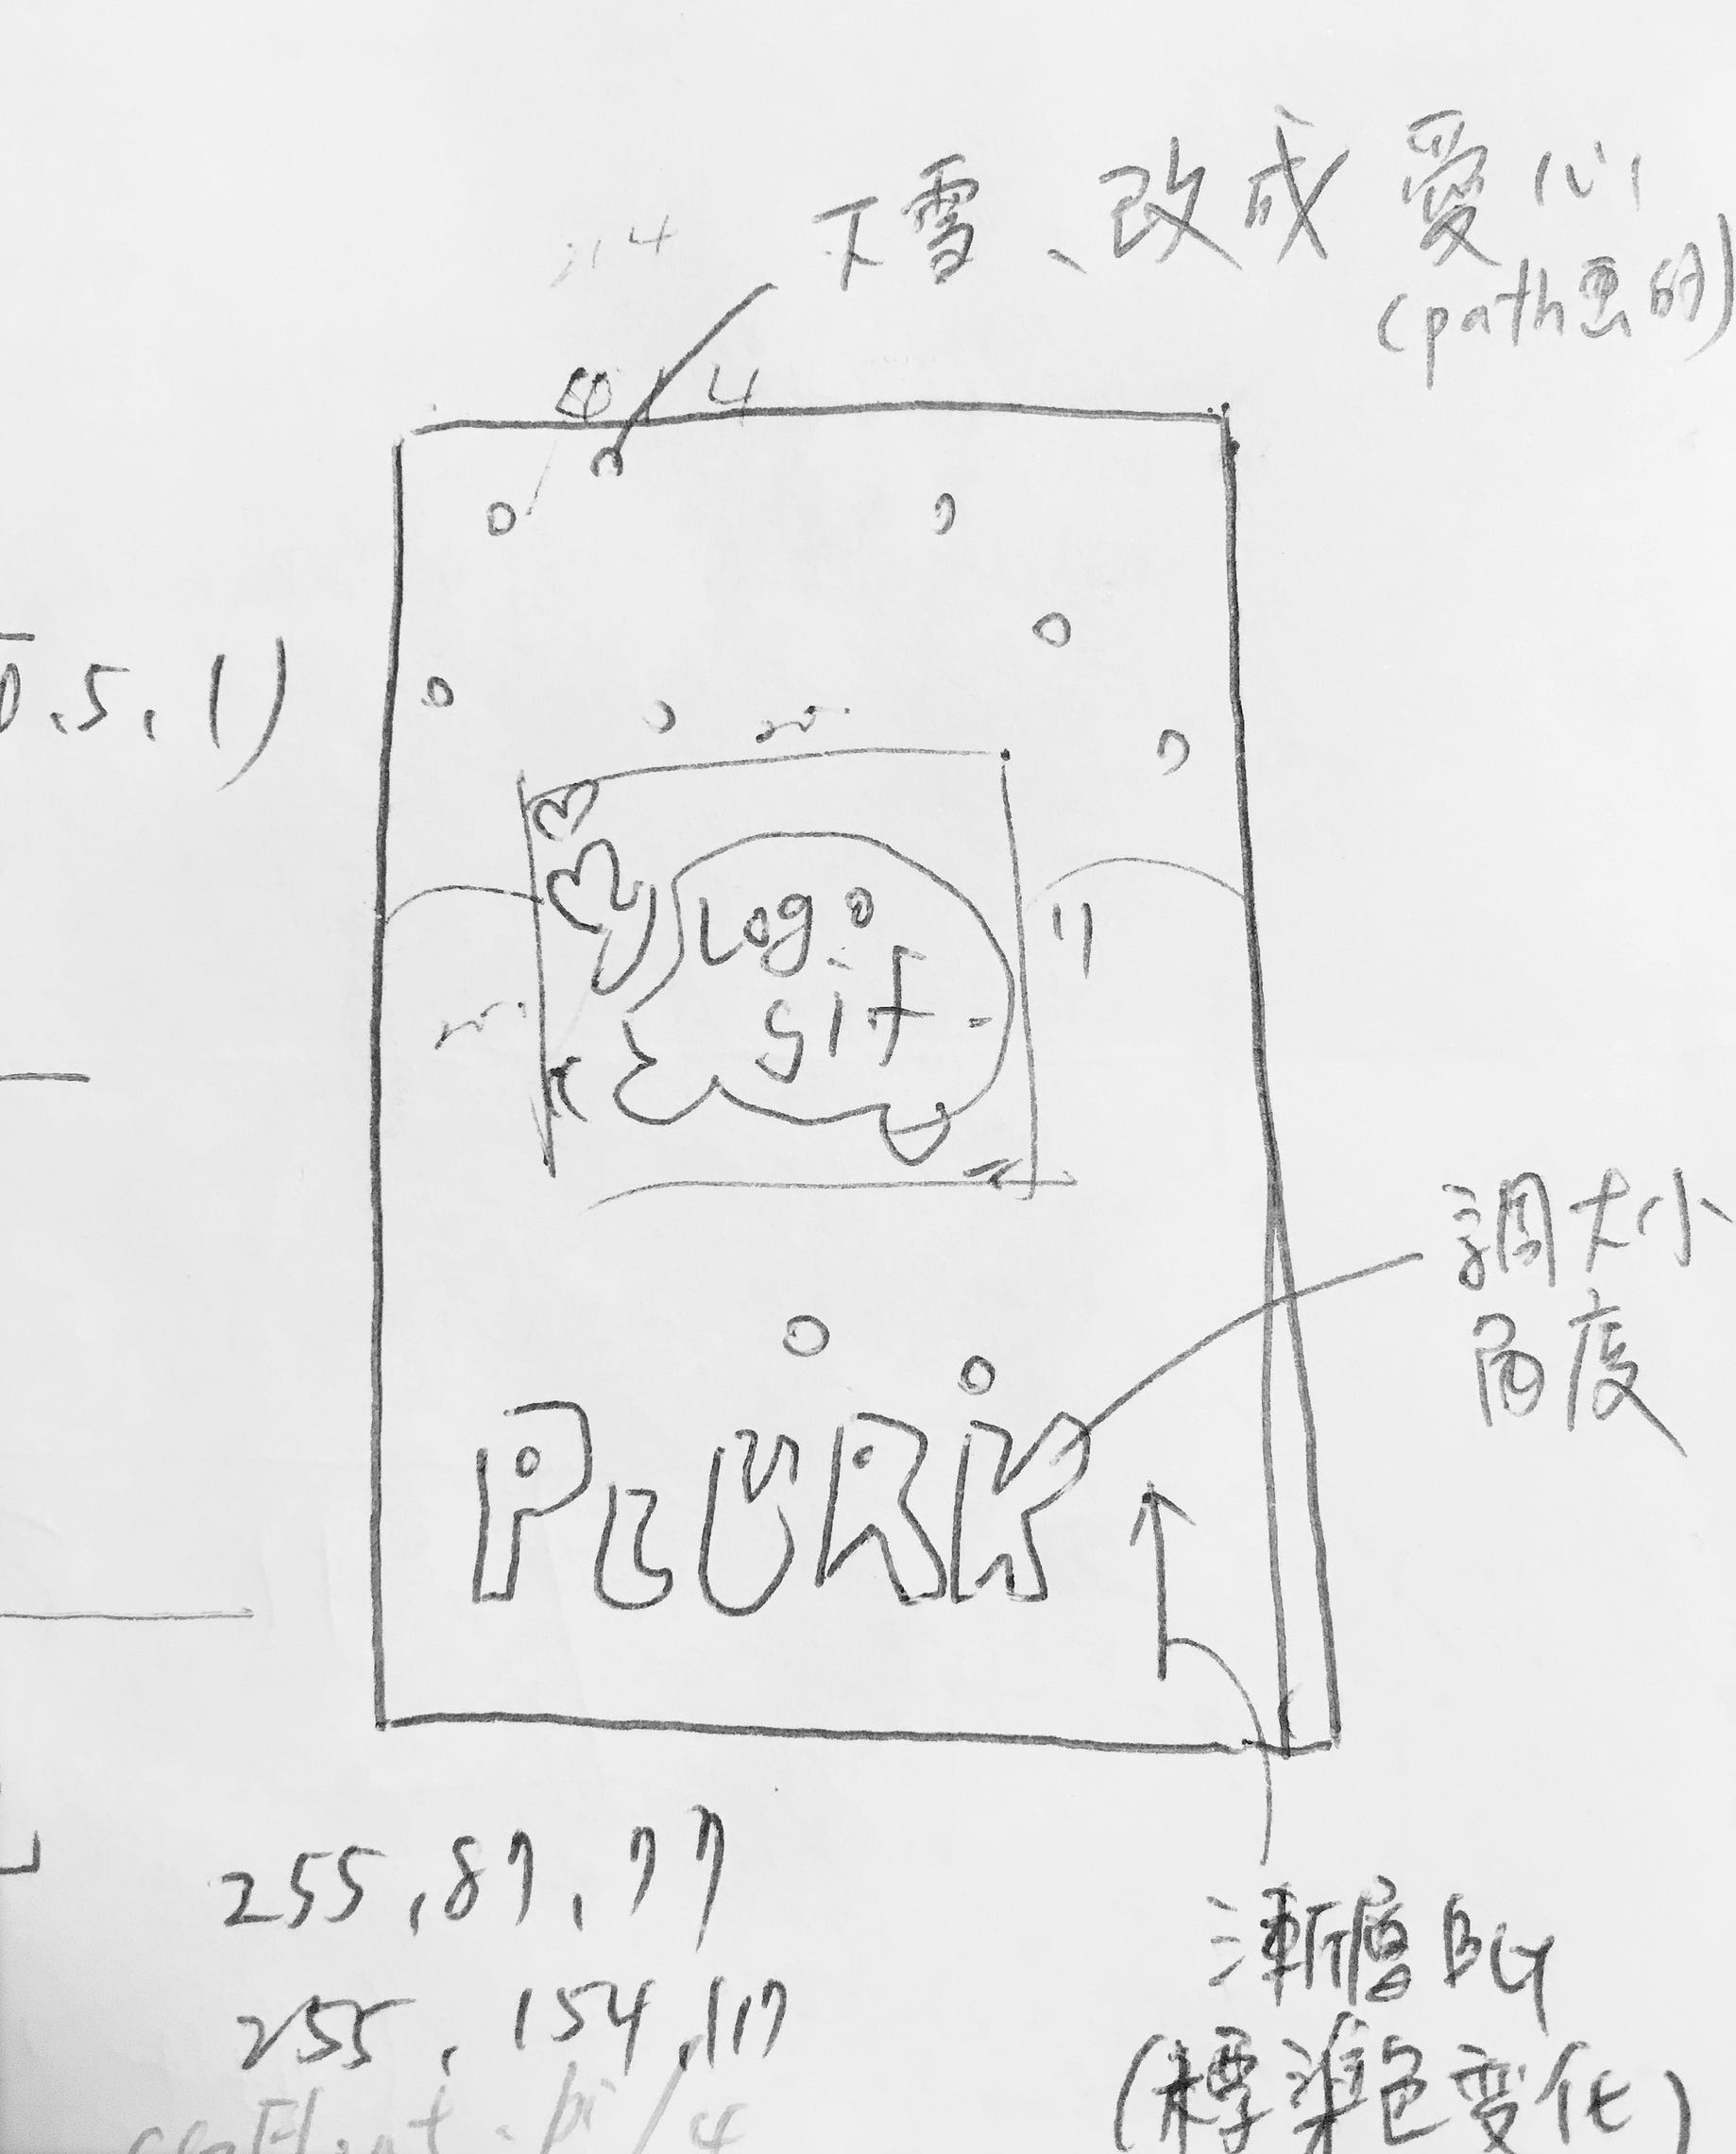 下雪、改成愛心
(path畫的)
4
4
0.5, 1)
Logo
gif
調大小
角度
PLURK
255, 87, 77
255, 154, 117
漸層BG
(標準色變化)